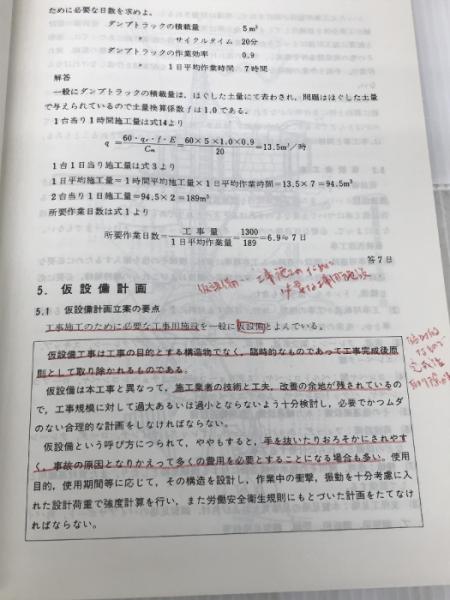 ために必要な日数を求めよ。
ダンプトラックの積載量 5m³
〃 サイクルタイム 20分
ダンプトラックの作業効率 0.9
〃 1日平均作業時間 7時間
解答
一般にダンプトラックの積載量は、ほぐした土量にて表わされ、問題はほぐした土量
で与えられているので土量換算係数 f は1.0である。
1台当り1時間施工量は式14より
q = 60・q₀・f・E / Cm = 60×5×1.0×0.9 / 20 = 13.5m³／時
1台1日当り施工量は式3より
1日平均施工量＝1時間平均施工量×1日平均作業時間＝13.5×7＝94.5m³
2台当り1日施工量＝94.5×2＝189m³
所要作業日数は式1より
所要作業日数＝ 工事量 / 1日平均作業量 ＝ 1300 / 189 ＝6.9≒7日
答7日
仮設備…工事施工のために
必要な工事用施設
5. 仮設備計画
5.1 仮設備計画立案の要点
工事施工のために必要な工事用施設を一般に仮設備とよんでいる。
仮設備工事は工事の目的とする構造物でなく、臨時的なものであって工事完成後原
則として取り除かれるものである。
仮設備は本工事と異なって、施工業者の技術と工夫、改善の余地が残されているの
で、工事規模に対して過大あるいは過小とならないよう十分検討し、必要でかつムダ
のない合理的な計画をしなければならない。
仮設備という呼び方につられて、ややもすると、手を抜いたりおろそかにされやす
く、事故の原因となりかえって多くの費用を必要とすることになる場合も多い。使用
目的、使用期間等に応じて、その構造を設計し、作業中の衝撃、振動を十分考慮に入
れた設計荷重で強度計算を行い、また労働安全衛生規則にもとづいた計画をたてなけ
ればならない。